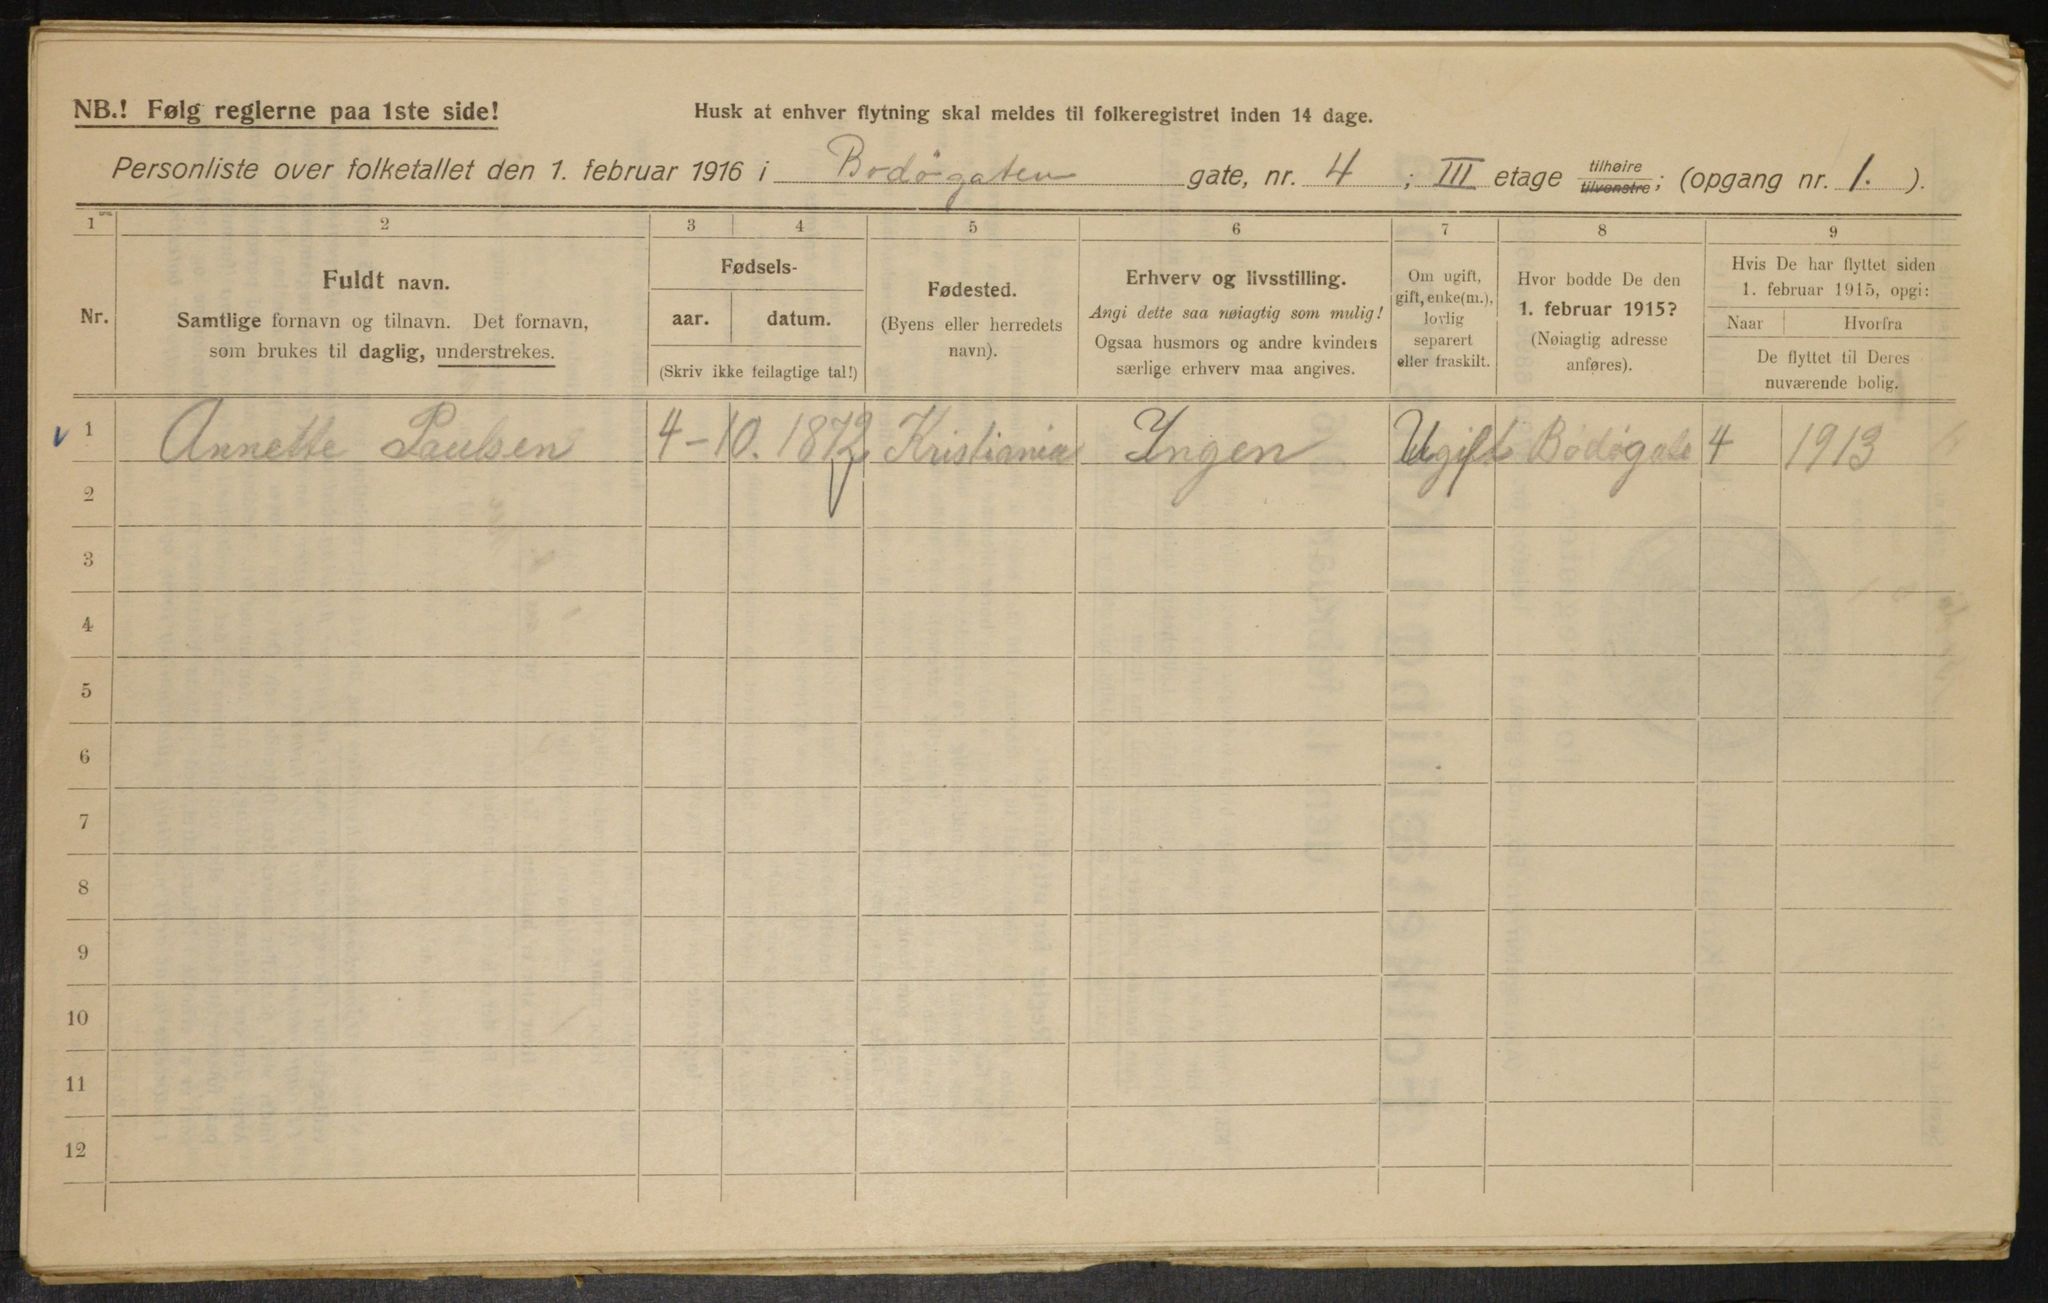 NB.! Følg reglerne paa 1ste side!
Husk at enhver flytning skal meldes til folkeregistret inden 14 dage.
Personliste over folketallet den 1. februar 1916 i Bodøgaten gate, nr. 4 ; III etage tilhøire tilvenstre; (opgang nr. 1. ).
1 2 3 4 5 6 7 8 9
Nr.
Fuldt navn.
Samtlige fornavn og tilnavn. Det fornavn,
som brukes til daglig, understrekes.
Fødsels-
aar. datum.
(Skriv ikke feilagtige tal!)
Fødested.
(Byens eller herredets
navn).
Erhverv og livsstilling.
Angi dette saa nøiagtig som mulig!
Ogsaa husmors og andre kvinders
særlige erhverv maa angives.
Om ugift,
gift, enke(m.),
lovlig
separert
eller fraskilt.
Hvor bodde De den
1. februar 1915?
(Nøiagtig adresse
anføres).
Hvis De har flyttet siden
1. februar 1915, opgi:
Naar Hvorfra
De flyttet til Deres
nuværende bolig.
1 Annette Paulsen 4-10. 1872 Kristiania Yngen Ugift Bodøgate 4 1913
2
3
4
5
6
7
8
9
10
11
12